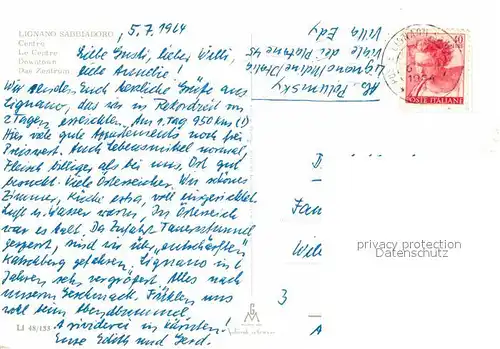 5.7.1964
LIGNANO SABBIADORO
Centro
Le Centre
Downtown
Das Zentrum
Liebe Gusti, lieber Willi,
liebe Annelie!
Wir senden Euch herzliche Grüße aus
Lignano, das wir in Rekordzeit von
2 Tagen erreichten. Am 1. Tag 950 km (!)
Hier viele gute Appartements noch frei
Preiswert. Auch Lebensmittel normal,
Fleisch billiger als bei uns, Ort gut
besucht. Viele Österreicher. Wir schönes
Zimmer, Küche extra, voll eingerichtet.
Luft u. Wasser warm, In Österreich
war es kalt. Da Zufahrt Tauerntunnel
gesperrt, sind wir über „entschärften"
Katschberg gefahren. Lignano in 6
Jahren sehr vergrößert. Alles nach
unserem Geschmack. Fühlen uns
wohl beim Abendbummel.
Arividerci in Kärnten!
Eure Edith und Gerd.
LI 48/133
Abs. Polunsky
Lignano/Udine/Italia
Viale dei Platani 45
Villa Edy
40
POSTE ITALIANE
1964
D
Fan
Wil
3
A
privacy protection
DANUBIUM.COM